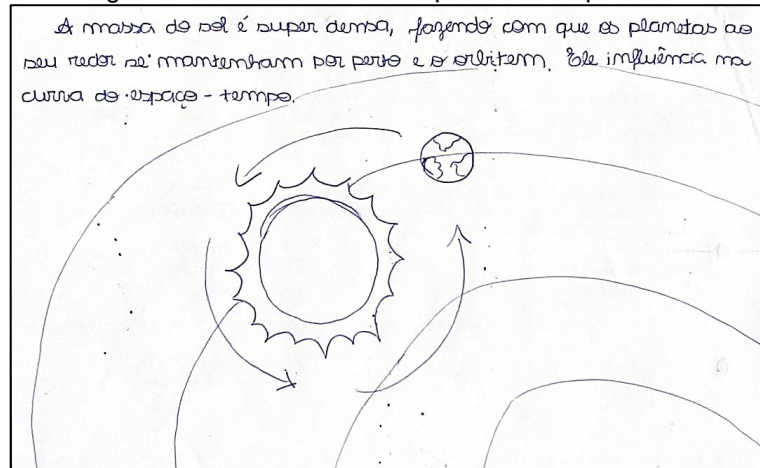 A massa do sol é super densa, fazendo com que os planetas ao
seu redor se mantenham por perto e o orbitem. Ele influência na
curva do espaço-tempo.